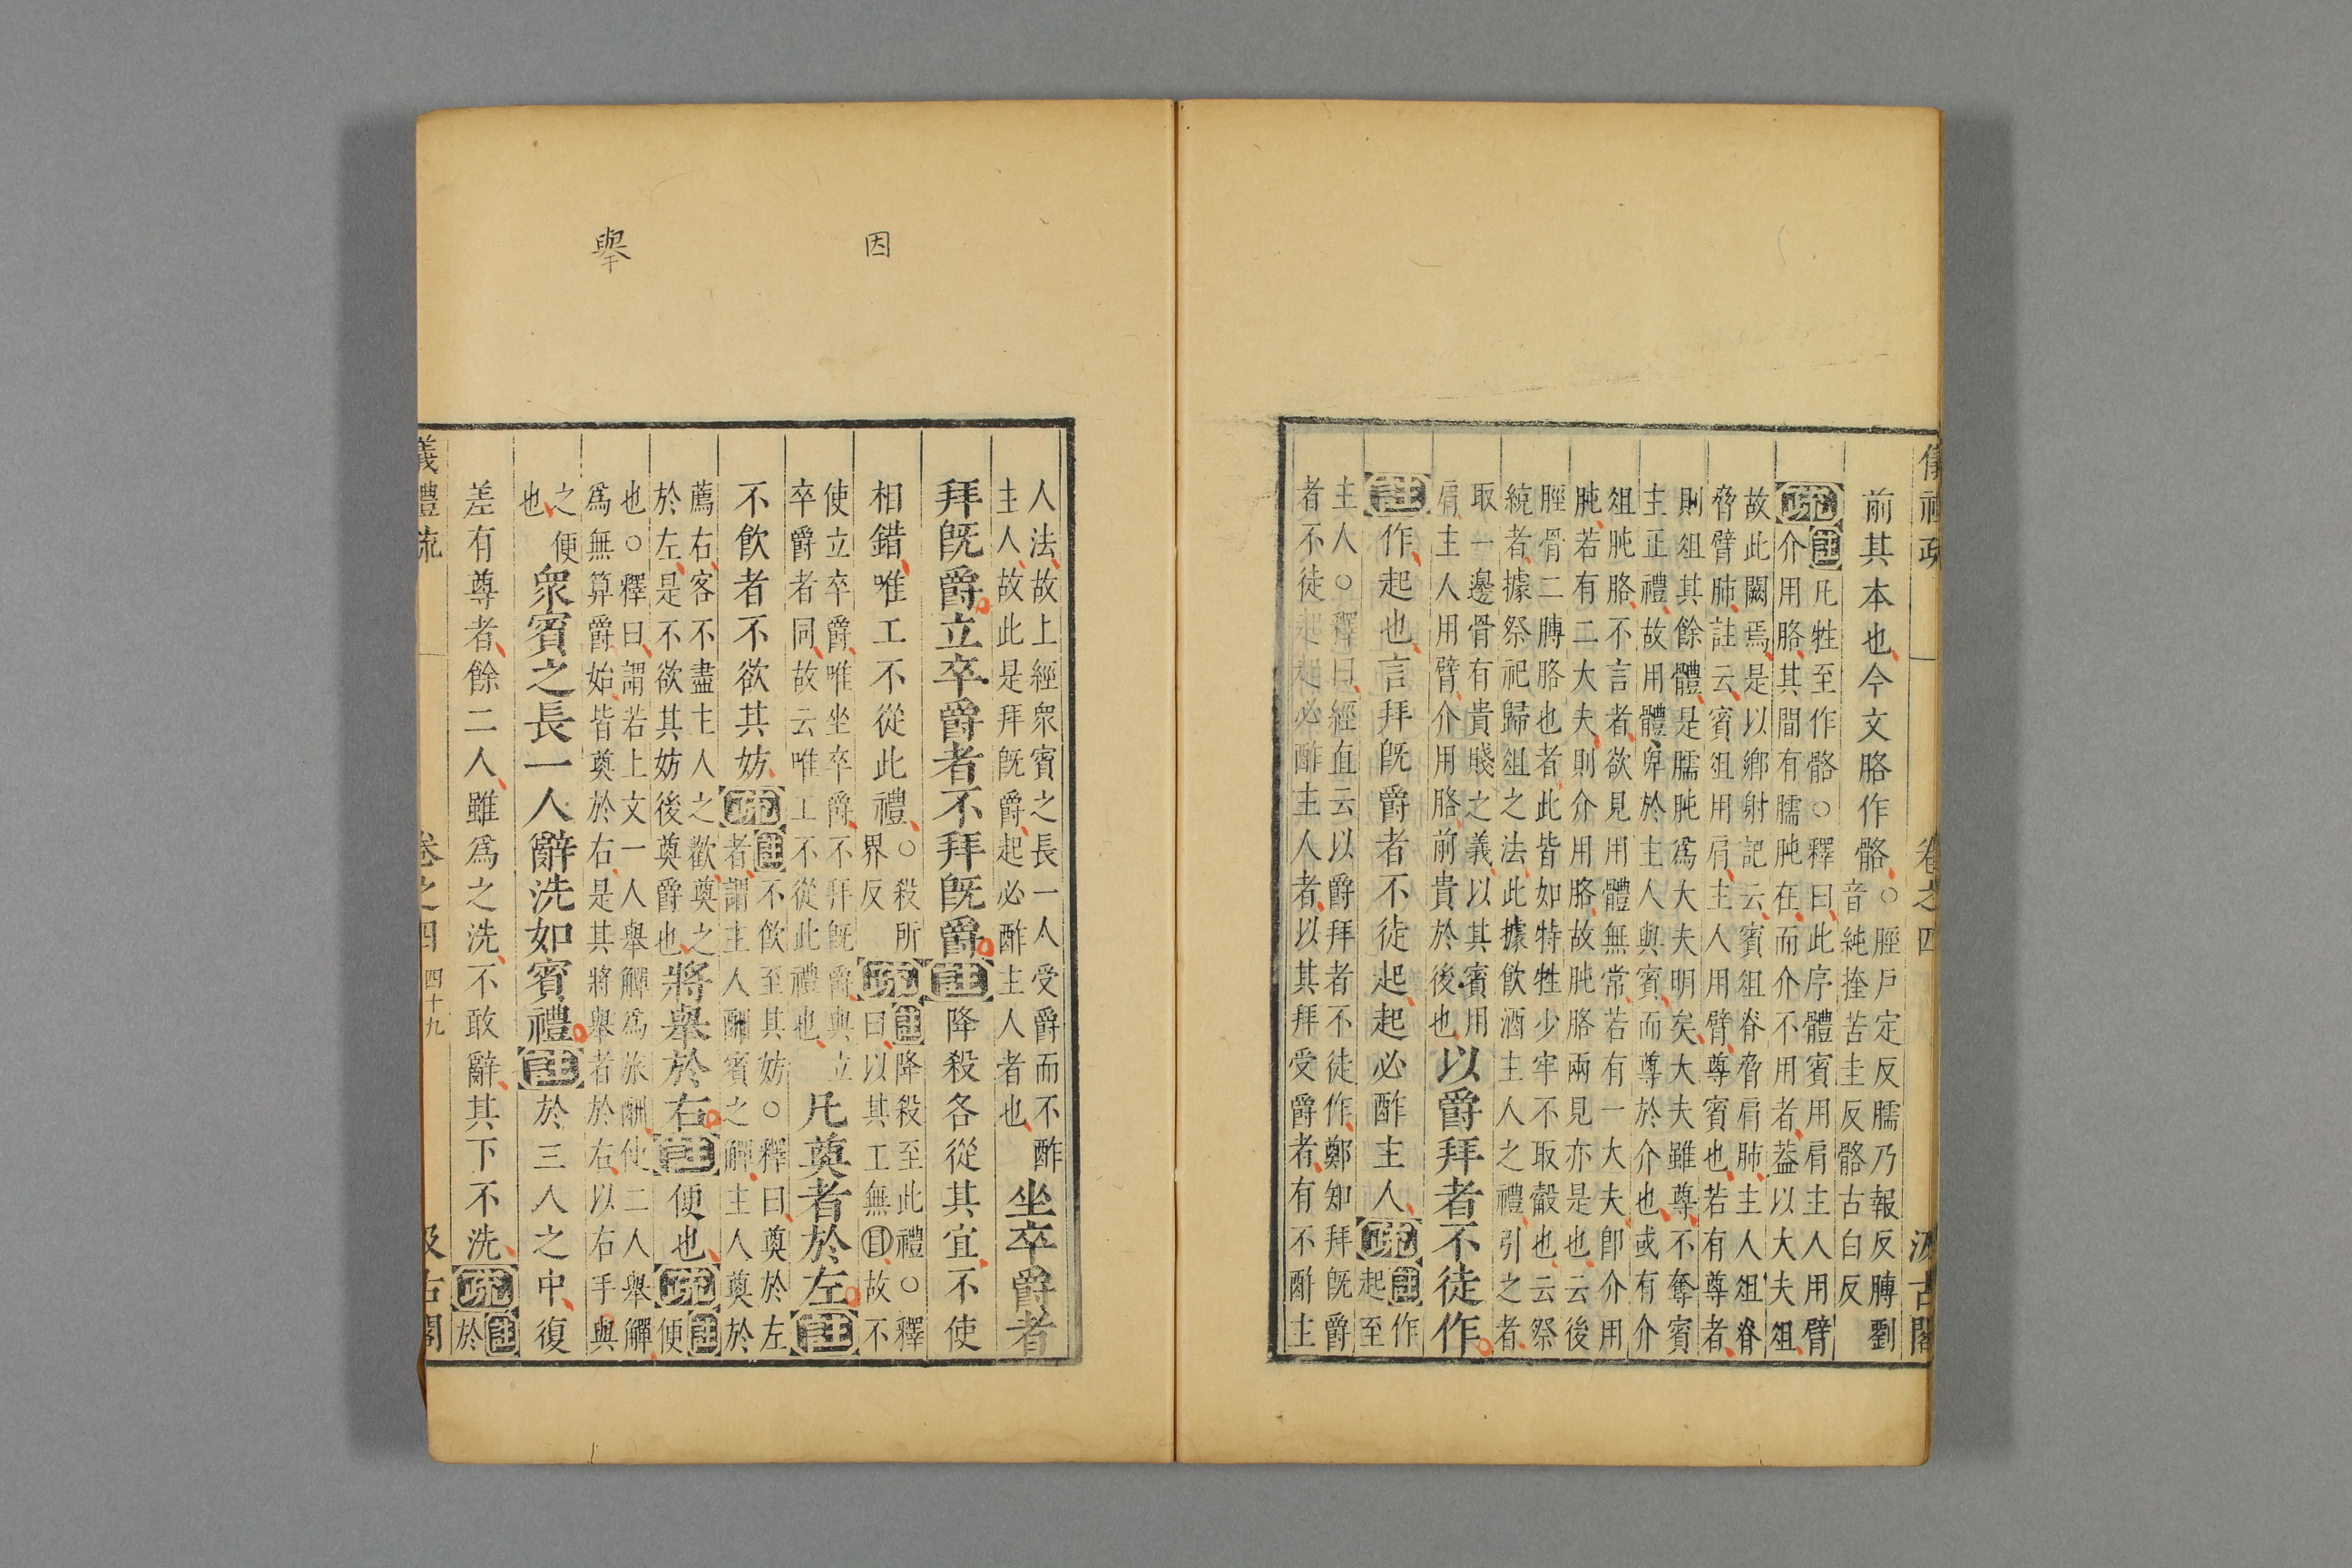 儀禮疏 卷之四 汲古閣
前其本也今文胳作骼○脛戶定反臑乃報反膊劉
音純捲苦圭反骼古白反
疏註凡牲至作骼○釋曰此序體賓用肩主人用臂
介用胳其間有臑肫在而介不用者葢以大夫俎
故此闕焉是以鄉射記云賓俎脊脅肩肺主人俎脊
脅臂肺註云賓俎用肩主人用臂尊賓也若有尊者
則俎其餘體是臑肫爲大夫明矣大夫雖尊不奪賓
主正禮故用體卑於主人與賓而尊於介也或有介
俎肫胳不言者欲見用體無常若有一大夫卽介用
肫若有二大夫則介用胳故肫胳兩見亦是也云後
脛骨二膊胳也者此皆如特牲少牢不取觳也云祭
統者據祭祀歸俎之法此據飲酒主人之禮引之者
取一邊骨有貴賤之義以其賓用
肩主人用臂介用胳前貴於後也以爵拜者不徒作
註作起也言拜旣爵者不徒起起必酢主人疏註作
起至
主人○釋曰經直云以爵拜者不徒作鄭知拜旣爵
者不徒起起必酢主人者以其拜受爵者有不酢主
人法故上經衆賓之長一人受爵而不酢
主人故此是拜旣爵起必酢主人者也坐卒爵者
拜旣爵立卒爵者不拜旣爵註降殺各從其宜不使
相錯唯工不從此禮○殺所
界反疏註降殺至此禮○釋
曰以其工無目故不
使立卒爵唯坐卒爵不拜旣爵與立
卒爵者同故云唯工不從此禮也凡奠者於左註
不飲者不欲其妨疏註不飲至其妨○釋曰奠於左
者謂主人酬賓之觶主人奠於
薦右客不盡主人之歡奠之
於左是不欲其妨後奠爵也將舉於右註便也疏註
便
也○釋曰謂若上文一人舉觶爲旅酬使二人舉觶
爲無算爵始皆奠於右是其將舉者於右以右手與
之便
也衆賓之長一人辭洗如賓禮註於三人之中復
差有尊者餘二人雖爲之洗不敢辭其下不洗疏註
於
儀禮疏 卷之四 四十九 汲古閣
因
舉